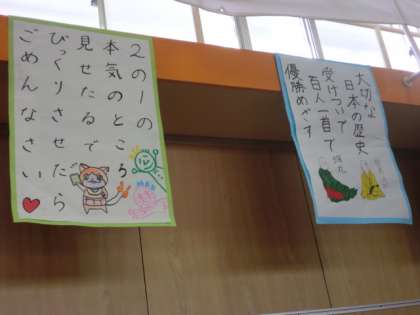 2の1の
本気のところ
見せたるで
びっくりさせたら
ごめんなさい
大切な
日本の歴史
受けついで
百人一首で
優勝めざす
蝉丸